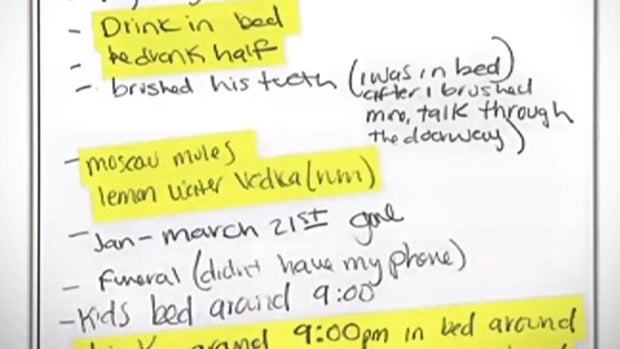 - Drink in bed
- he drank half
- brushed his teeth (I was in bed)
after I brushed
mine, talk through
the doorway)
- moscow mules
lemon water vodka (hm)
- Jan - march 21st gone
- Funeral (didn't have my phone)
- Kids bed around 9:00
around 9:00pm in bed around